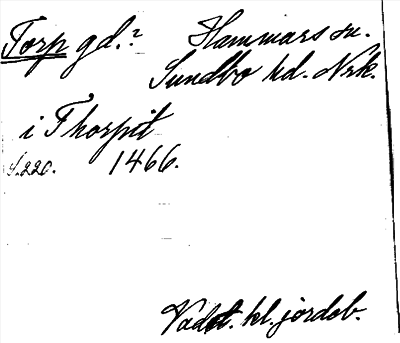 Torp gd.? Hammars sn.
Sundbo hd. Nrk.
i Thorpit
s.220. 1466.
Vadst. kl. jordeb.